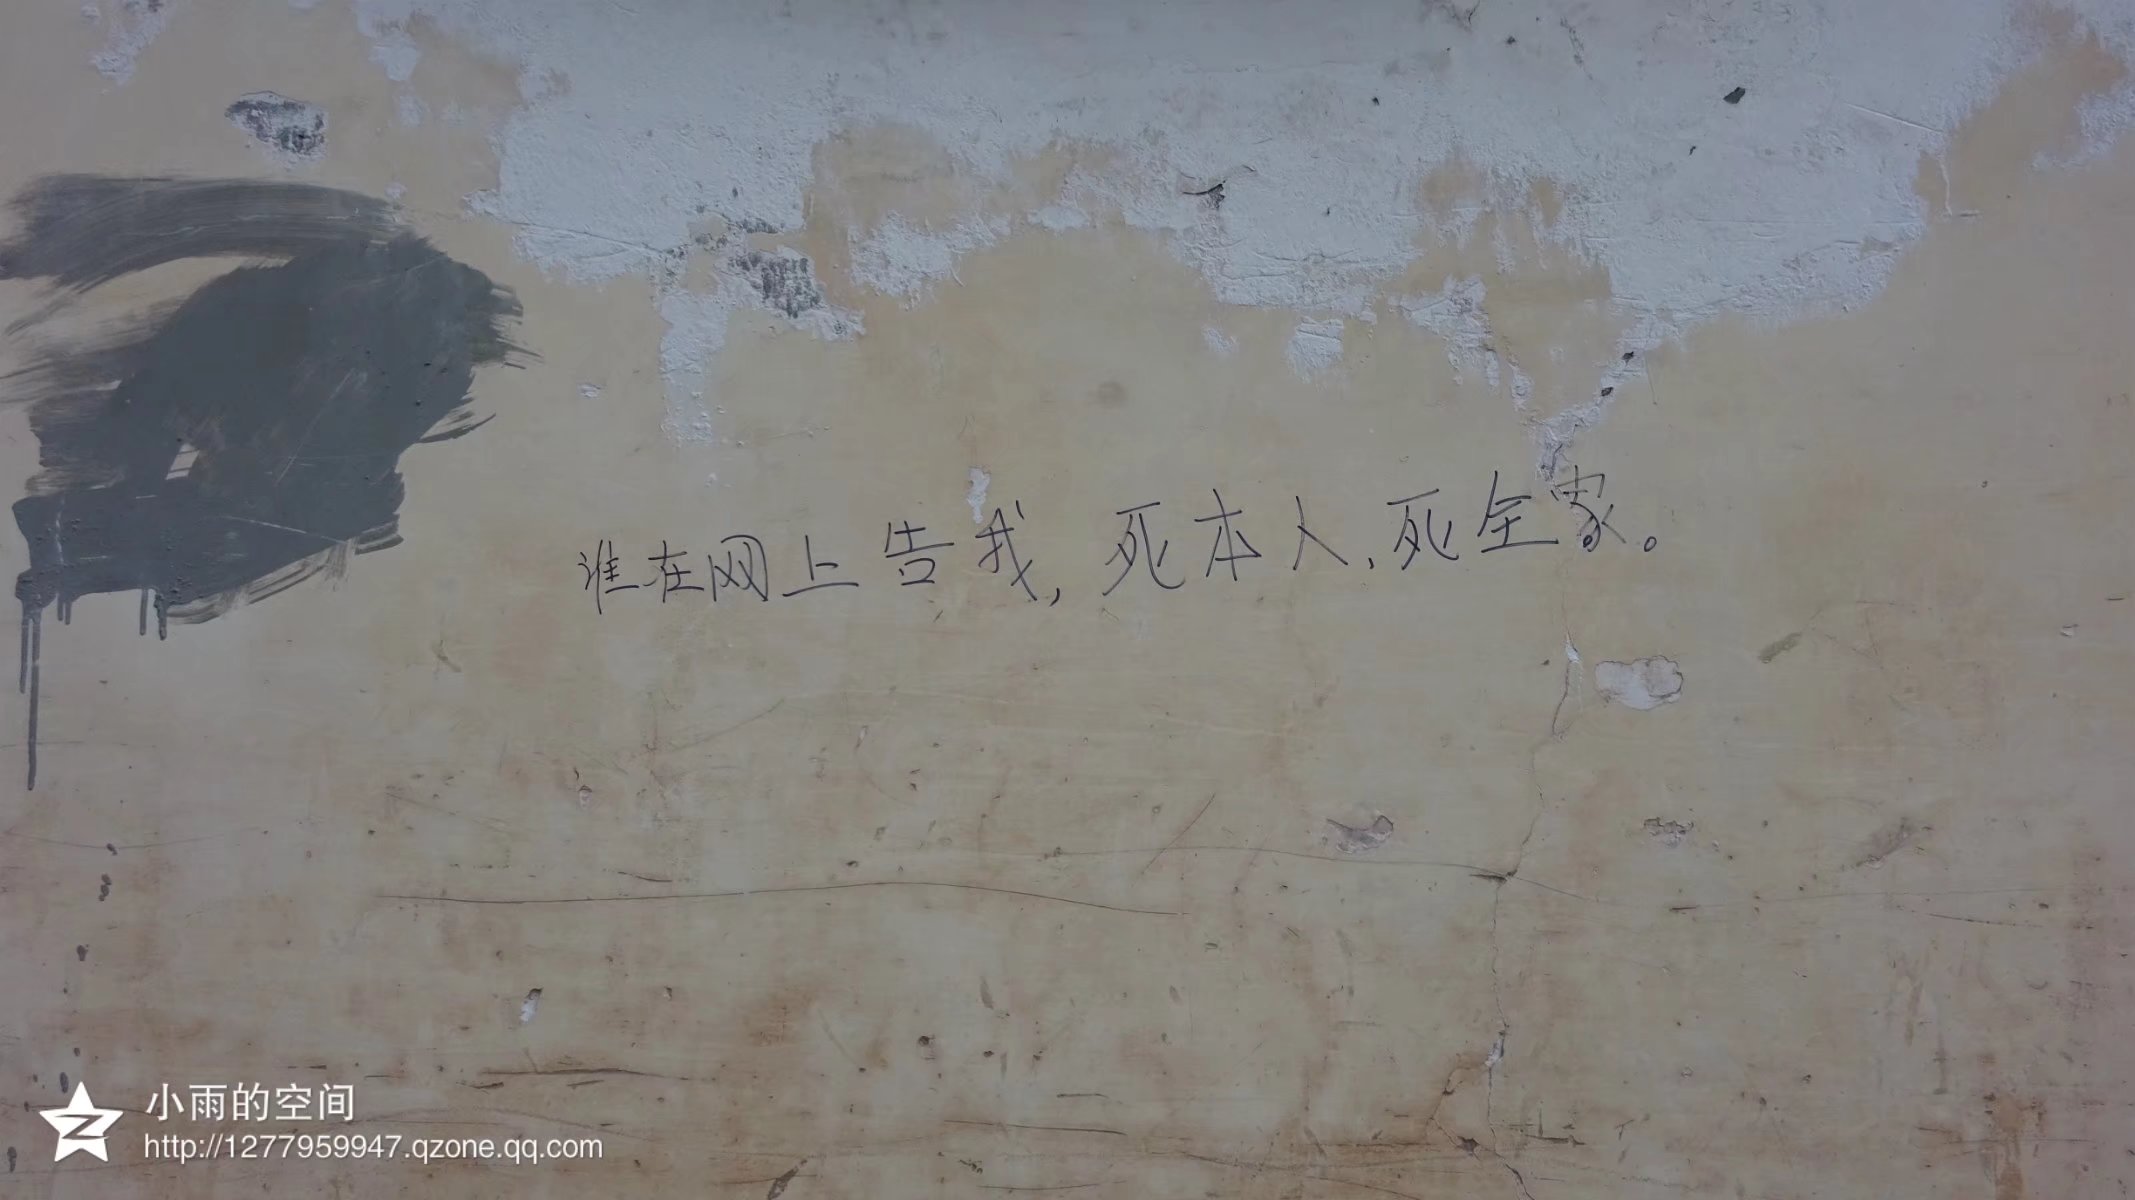 谁在网上告我，死本人，死全家。
小雨的空间
http://1277959947.qzone.qq.com